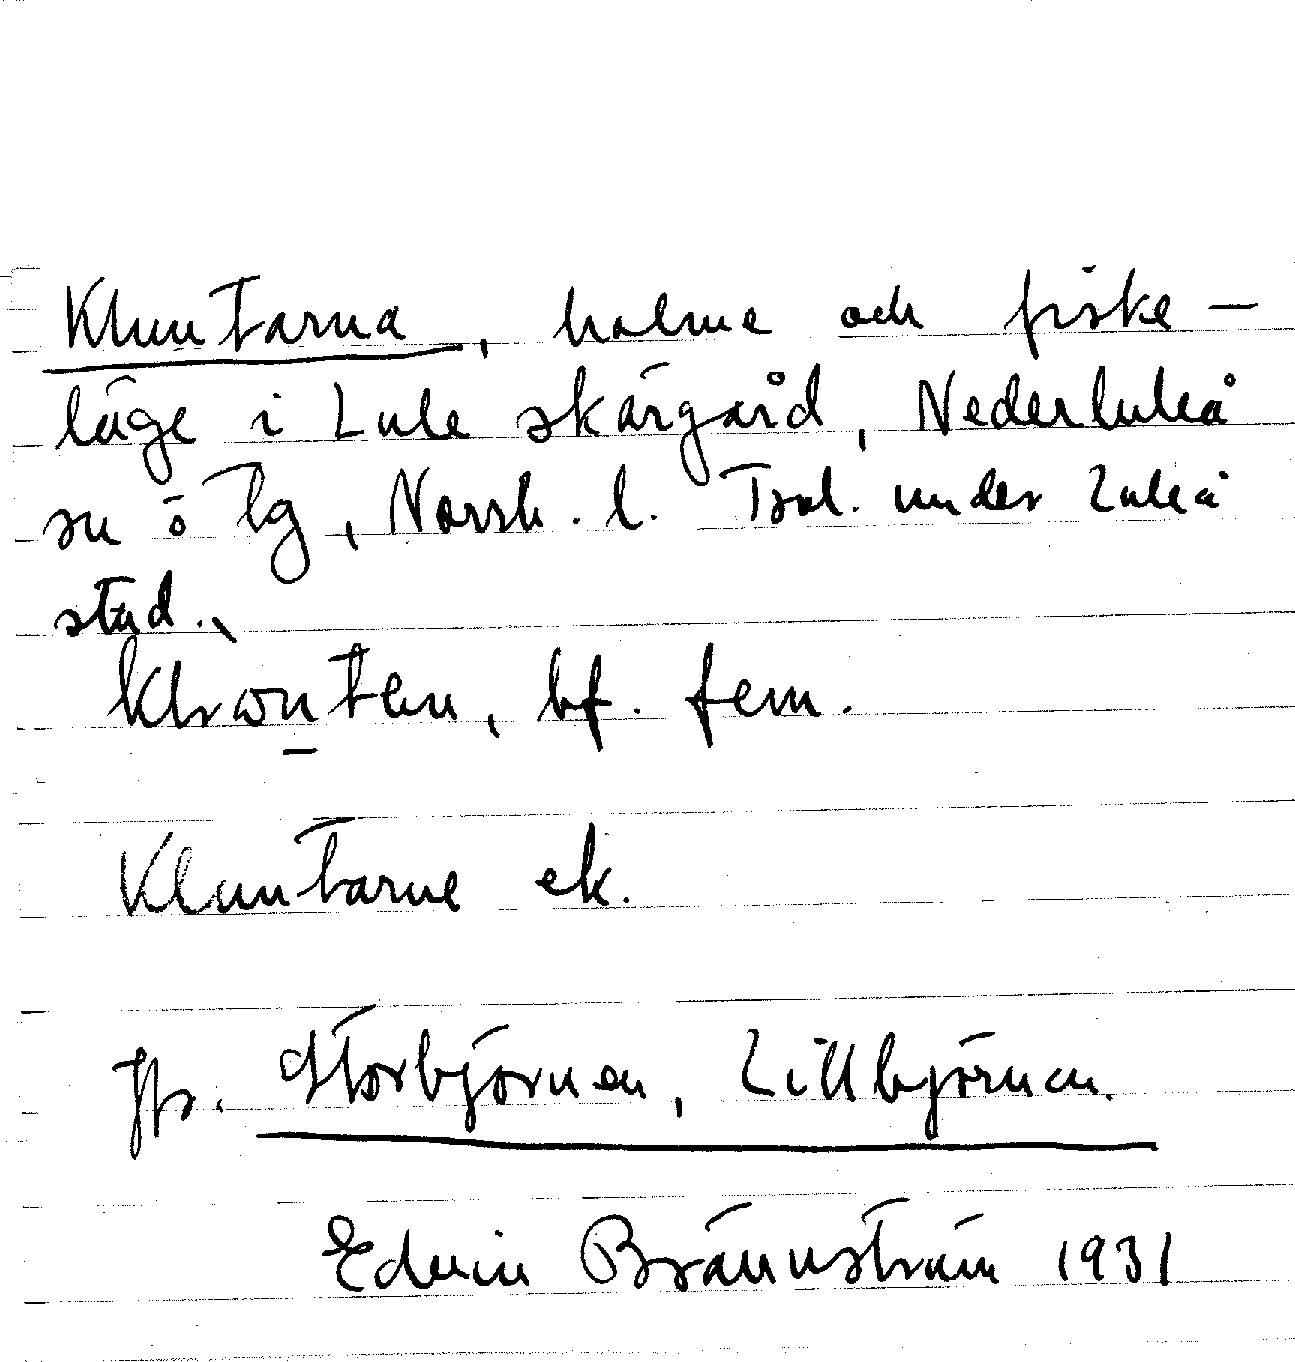 Kluntarna, holme och fiske-
läge i Lule skärgård, Nederluleå
sn ö tg, Norrb. l. Tsol. under Luleå
stad.
bf. fem.
Kluntarne ek.
Jfr. Storbjörnen, Lillbjörnen.
Edvin Brännström 1931